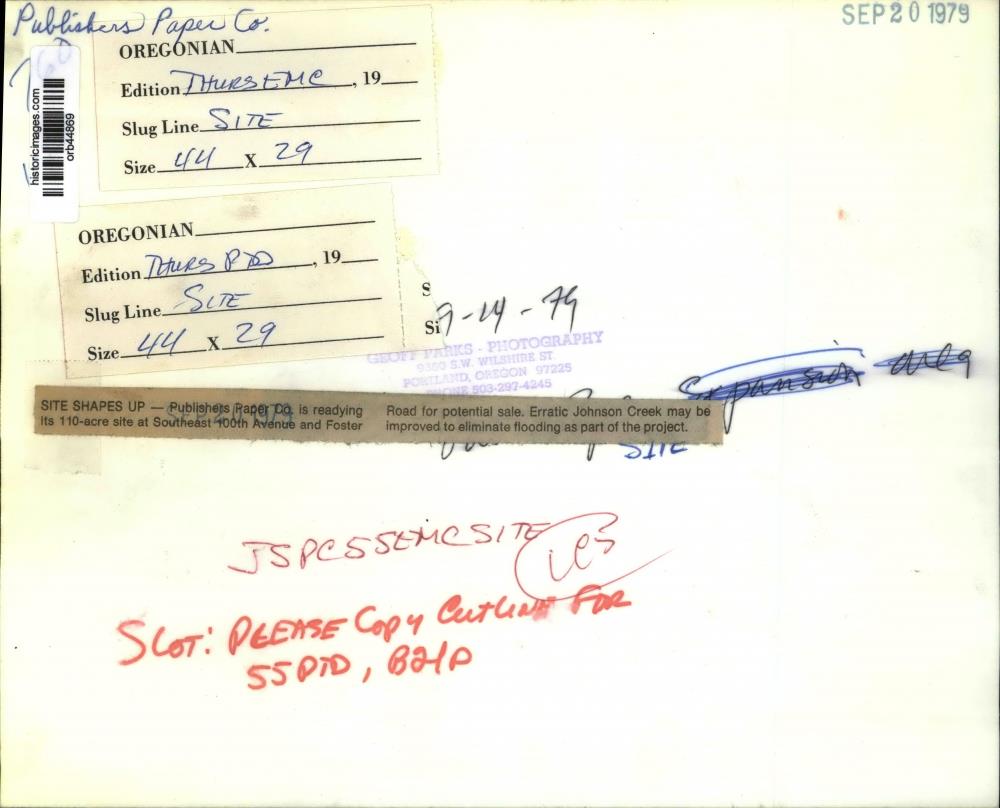 Publishers Paper Co.
SEP 20 1979
historicimages.com
orb44869
OREGONIAN
Edition THURS EMC, 19
Slug Line SITE
Size 44 X 29
OREGONIAN
Edition THURS PTD, 19
Slug Line SITE
Size 44 X 29
S
Si
9-14-79
GEOFF PARKS - PHOTOGRAPHY
9360 S.W. WILSHIRE ST.
PORTLAND, OREGON 97225
PHONE 503-297-4245
Expansion area
SITE SHAPES UP — Publishers Paper Co. is readying
its 110-acre site at Southeast 100th Avenue and Foster
Road for potential sale. Erratic Johnson Creek may be
improved to eliminate flooding as part of the project.
SEP 20 1979
SITE
JSPC55EMCSITE
SLOT: PLEASE COPY CUTLINE FOR
55PTD,